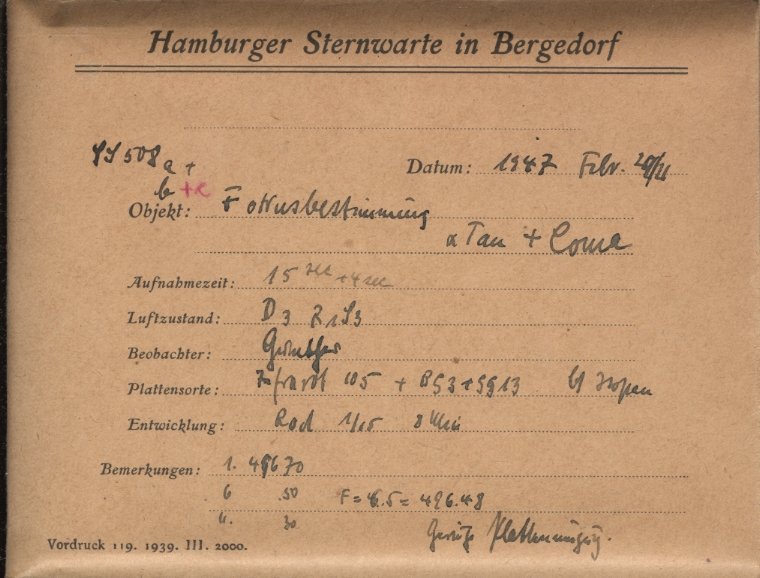 Hamburger Sternwarte in Bergedorf
SS 508 a +
Datum: 1947 Febr. 20/21
b + c
Objekt: Fokusbestimmung
α Tau + Coma
Aufnahmezeit: 15 sec + 4 sec
Luftzustand: D3 Z1 S3
Beobachter:
Plattensorte: Infrarot 105 + BG3 + GG13
Entwicklung: Rod 1/15 8 Min
Bemerkungen: 1. 49670
6 .50 F = 6.5 = 496.48
11. 30
Vordruck 119. 1939. III. 2000.